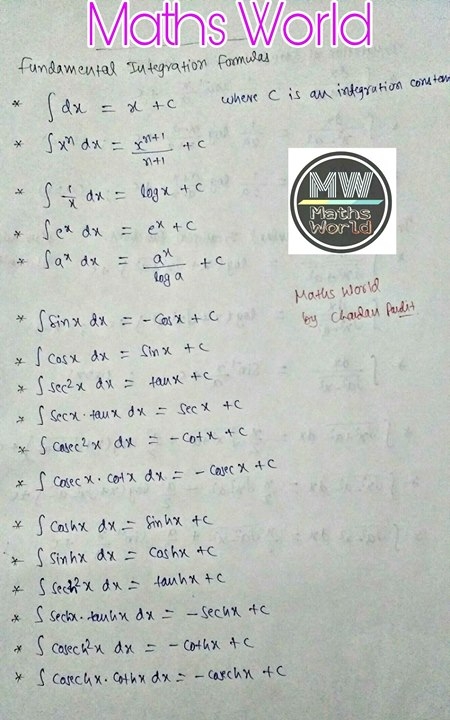 Maths World
Fundamental Integration Formulas
* ∫ dx = x + c where C is an integration constan
* ∫ xⁿ dx = xⁿ⁺¹/n+1 + c
* ∫ 1/x dx = log x + c
MW
Maths
World
* ∫ eˣ dx = eˣ + c
* ∫ aˣ dx = aˣ/log a + c
Maths World
by Chandan Pandit
* ∫ sinx dx = -cosx + c
* ∫ cosx dx = sinx + c
* ∫ sec²x dx = tanx + c
* ∫ secx·tanx dx = secx + c
* ∫ cosec²x dx = -cotx + c
* ∫ cosecx·cotx dx = -cosecx + c
* ∫ coshx dx = sinhx + c
* ∫ sinhx dx = coshx + c
* ∫ sech²x dx = tanhx + c
* ∫ sechx·tanhx dx = -sechx + c
* ∫ cosech²x dx = -cothx + c
* ∫ cosechx·cothx dx = -cosechx + c